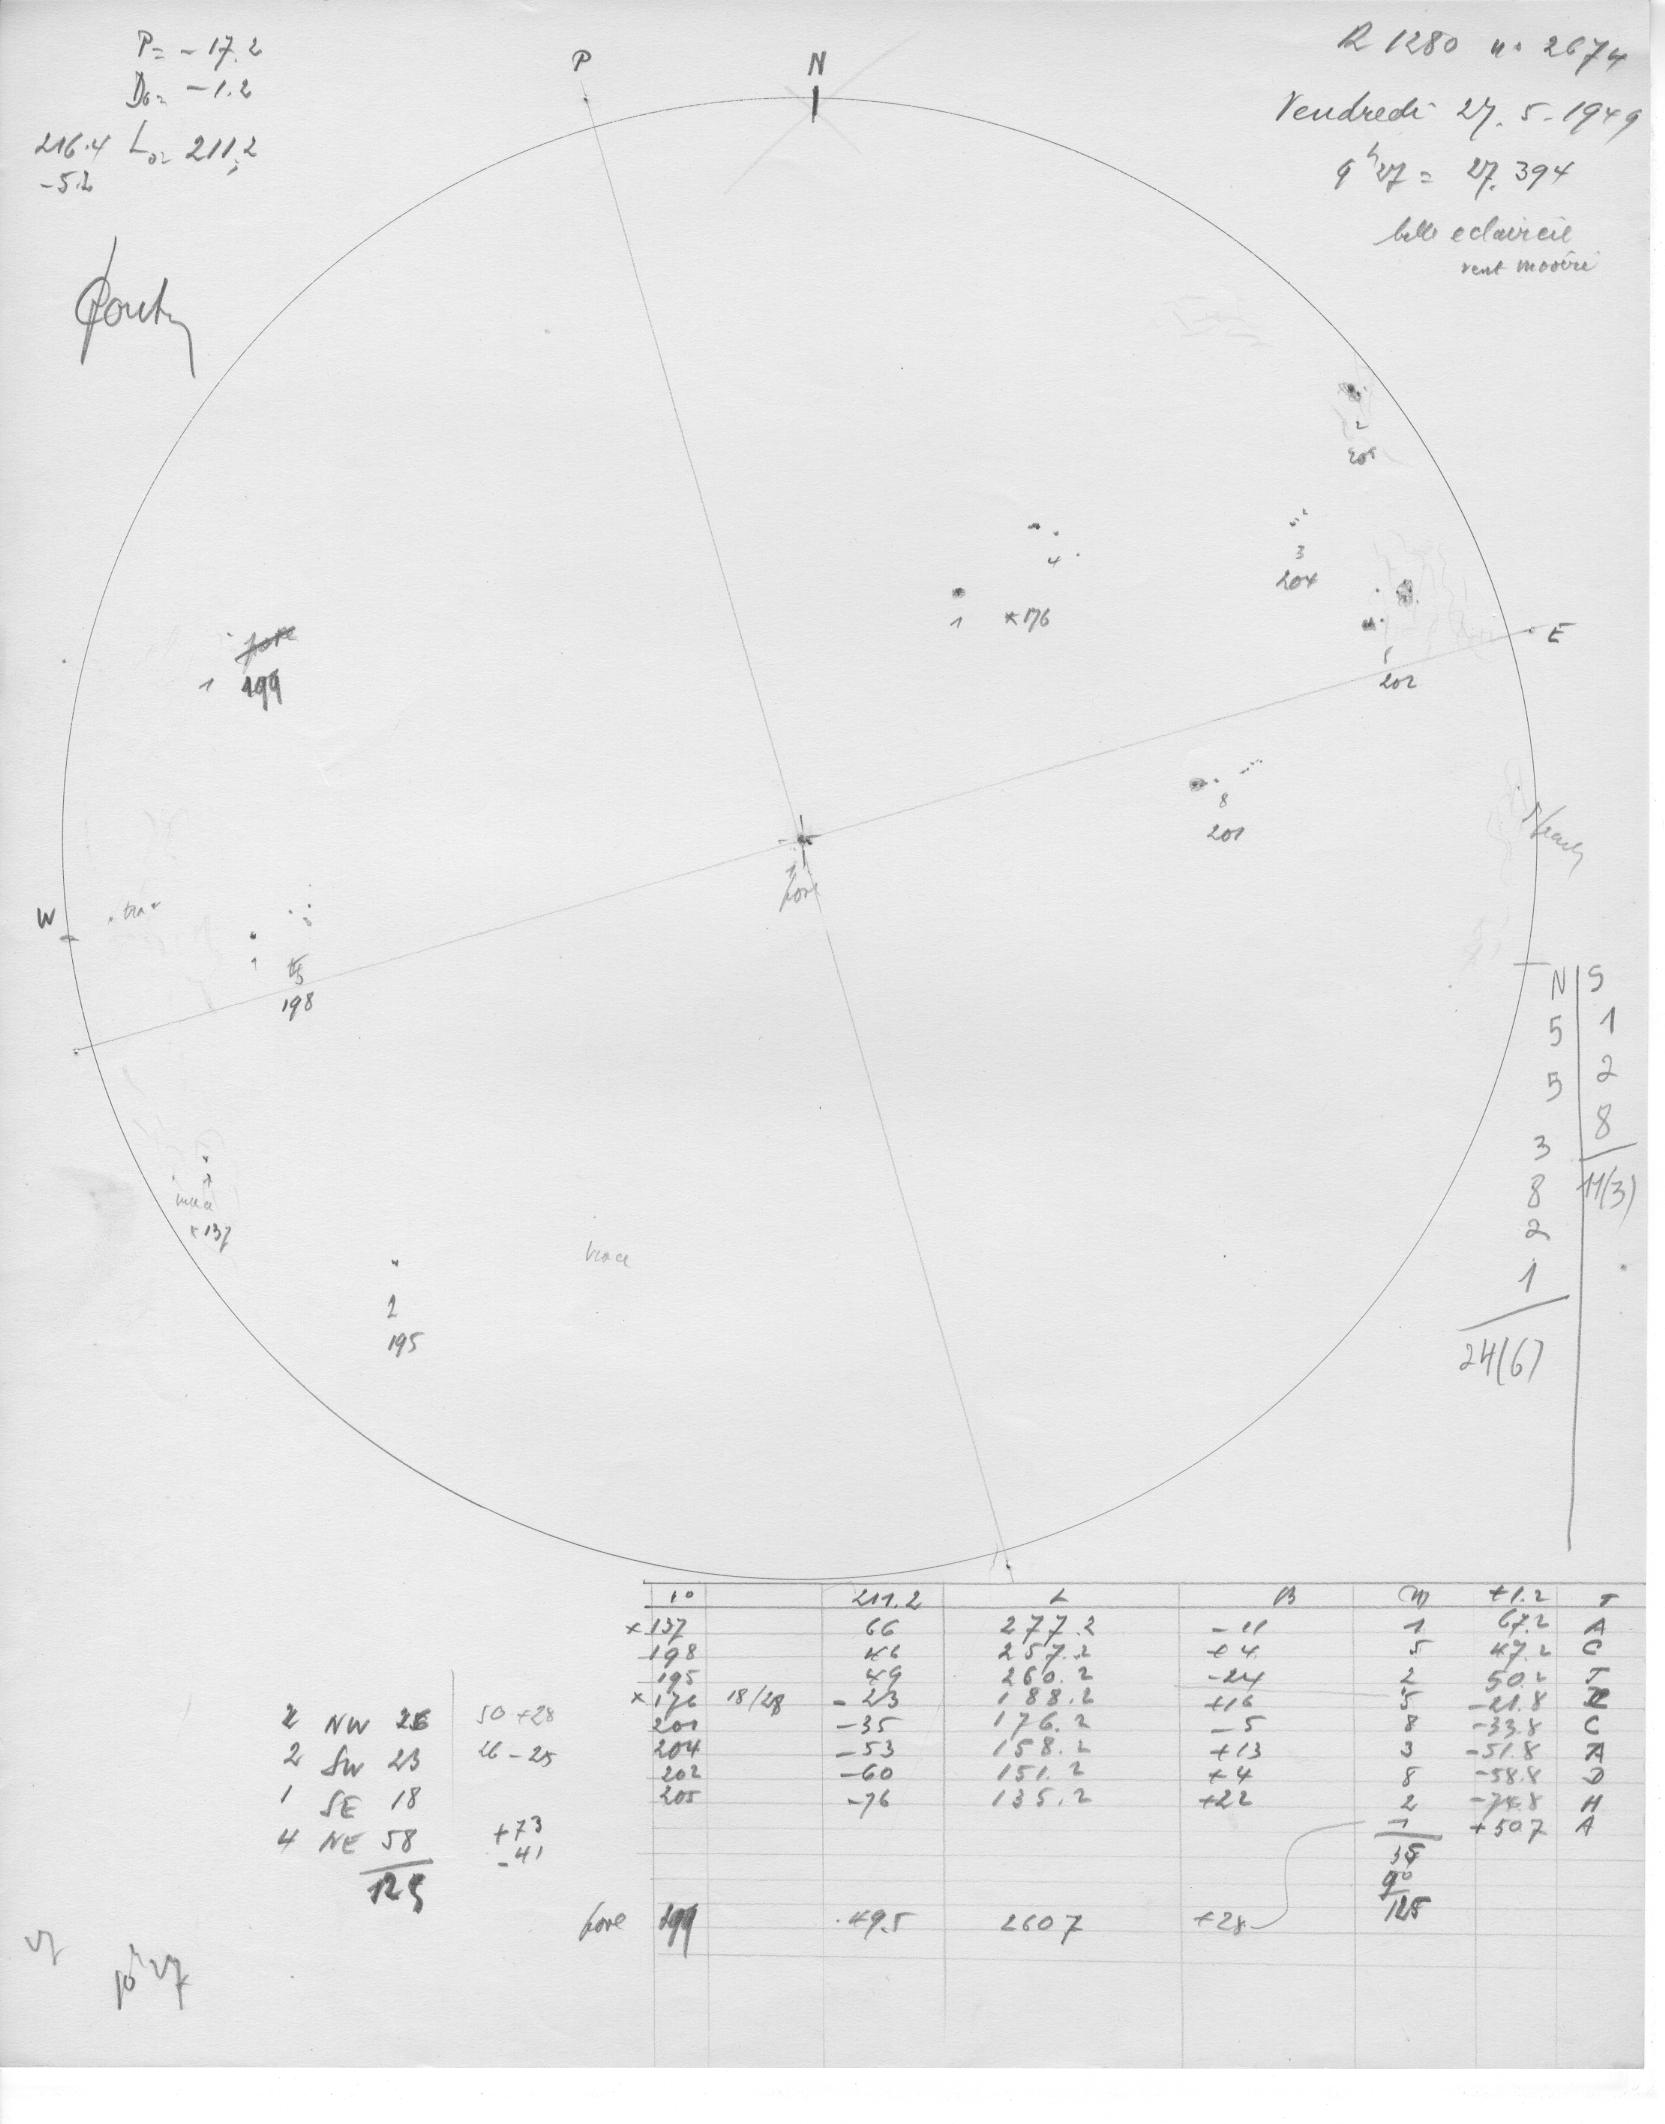 P = -17.2
B₀ = -1.2
216.4 L₀ = 211.2
-5.2
P
N
R 1280 n° 2674
Vendredi 27.5.1949
9h27 = 27.394
belle eclaircie
vent modéré
2
205
4
3
204
1
×176
pore
1 199
E
5
202
8
201
pore
W
1
5
198
×137
2
195
trace
N S
5 1
5 2
3 8
8 11(3)
2
1
24(6)
n° 211.2 L B +1.2 T
×137 66 277.2 -11 1 67.2 A
198 46 257.2 +4 5 47.2 C
195 49 260.2 -24 2 50.2 J
×176 18/28 -23 188.2 +16 5 -21.8
201 -35 176.2 -5 8 -33.8 C
204 -53 158.2 +13 3 -51.8 A
202 -60 151.2 +4 8 -58.8 D
205 -76 135.2 +22 2 -74.8 H
1 +50.7 A
35
90
125
pore 199 49.5 260.7 +28
2 NW 26 50 +28
2 SW 23 26 -25
1 SE 18
4 NE 58 +73
-41
125